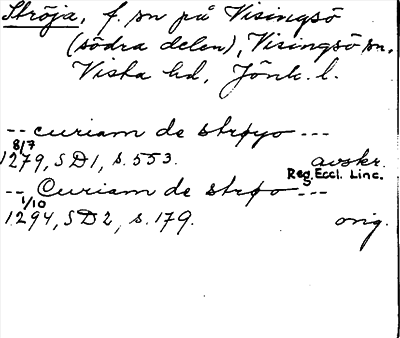 Ströja, f. sn på Visingsö
(södra delen), Visingsö sn,
Vista hd, Jönk. l.
-- curiam de strøyo ---
8/7
1279, SD1, s. 553. avskr.
Reg. Eccl. Linc.
-- Curiam de strøo ---
1/10
1294, SD2, s. 179. orig.